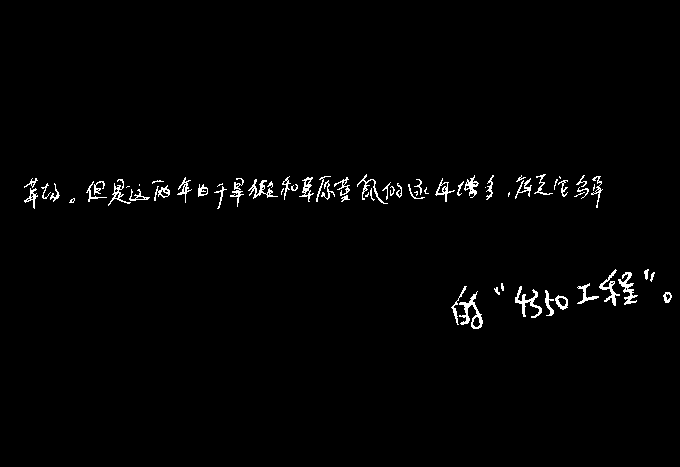 草场。但是这两年由于旱獭和草原黄鼠的逐年增多,
的“4350工程”。